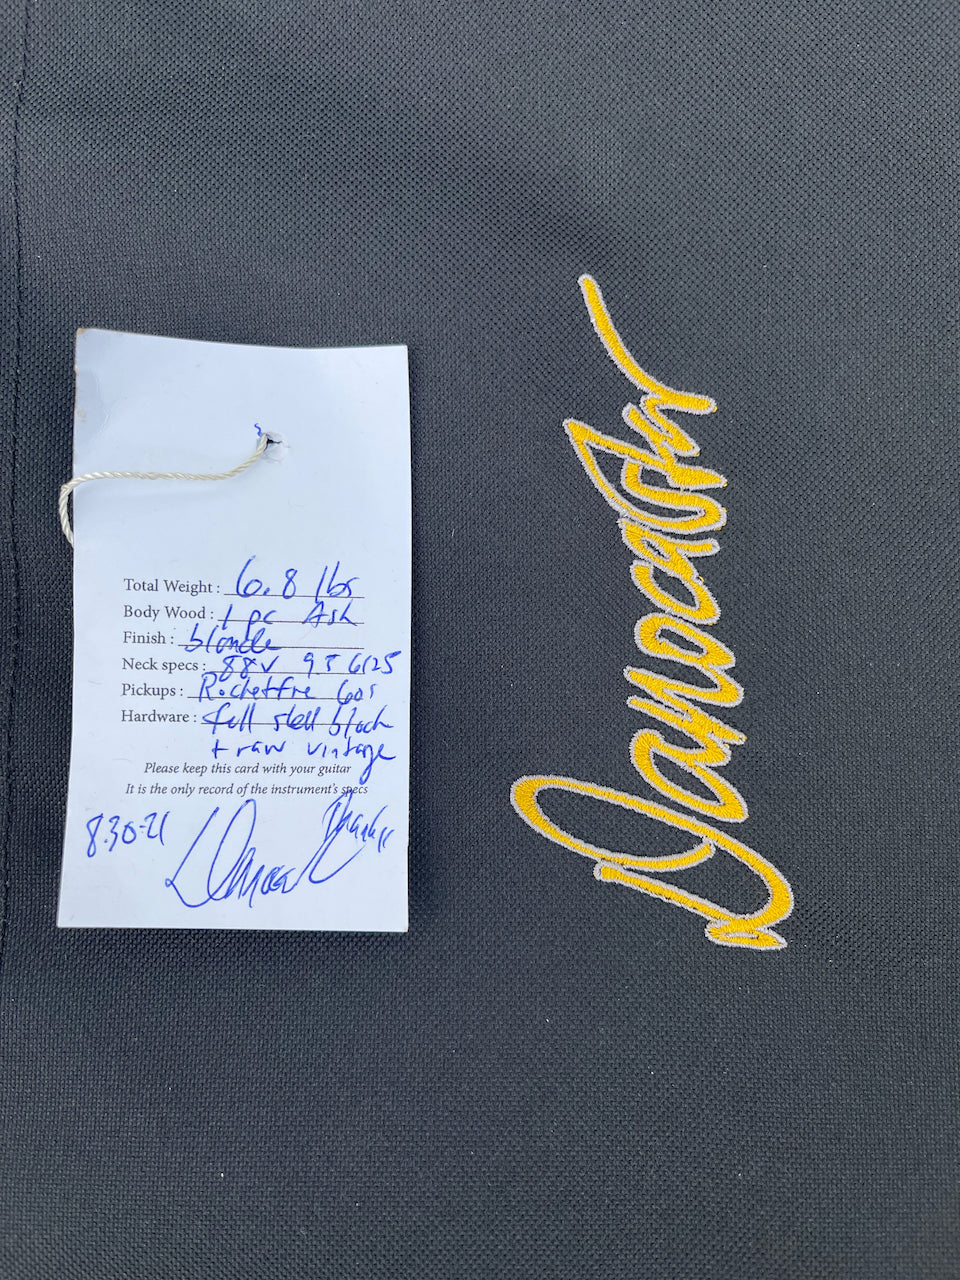 Total Weight : 6.8 lbs
Body Wood : 1 pc Ash
Finish : blonde
Neck specs : 88V 95 6125
Pickups : Rocketfire 60s
Hardware : full steel block
+ raw vintage
Please keep this card with your guitar
It is the only record of the instrument's specs
Thanks
8.30-21
Danocaster